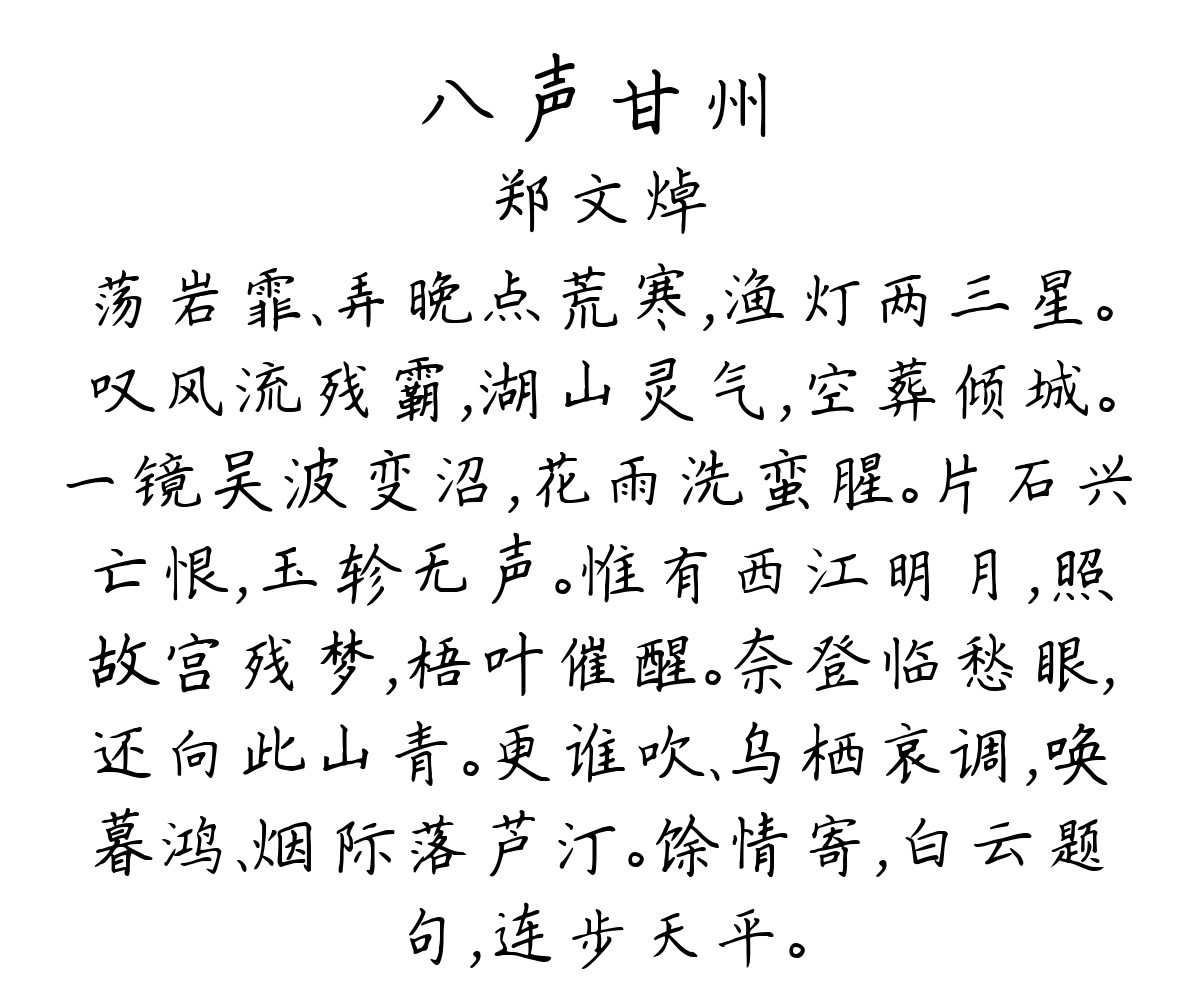 八声甘州
郑文焯
荡岩霏、弄晚点荒寒,渔灯两三星。
叹风流残霸,湖山灵气,空葬倾城。
一镜吴波变沼,花雨洗蛮腥。片石兴
亡恨,玉轸无声。惟有西江明月,照
故宫残梦,梧叶催醒。奈登临愁眼,
还向此山青。更谁吹、乌栖哀调,唤
暮鸿、烟际落芦汀。馀情寄,白云题
句,连步天平。